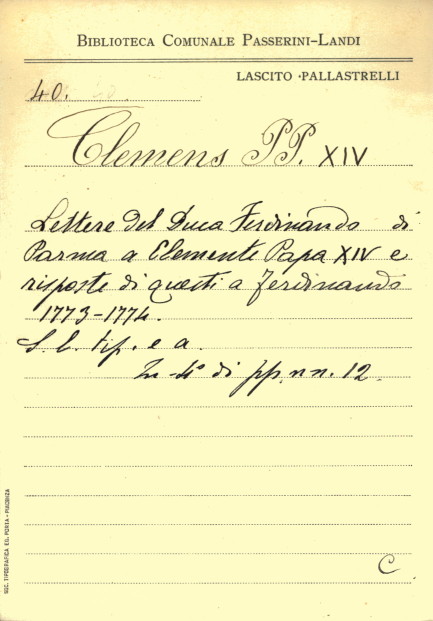 BIBLIOTECA COMUNALE PASSERINI-LANDI
LASCITO PALLASTRELLI
40.
Clemens PP. XIV
Lettere del Duca Ferdinando di
Parma a Clemente Papa XIV e
risposte di questi a Ferdinando
1773-1774.
S. l. tip. e a.
In-4° di pp. nn. 12.
C
SOC. TIPOGRAFICA ED. PORTA - PIACENZA